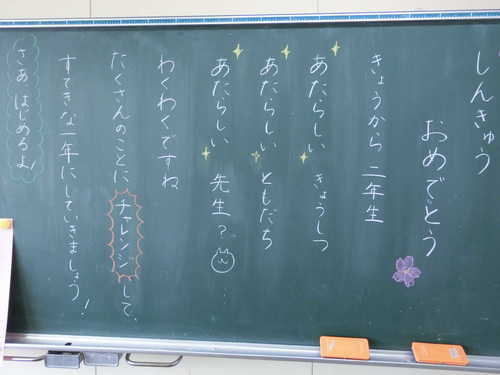 しんきゅう
おめでとう
きょうから 二年生
あたらしい きょうしつ
あたらしい ともだち
あたらしい 先生?
わくわくですね
たくさんのことにチャレンジして、
すてきな一年にしていきましょう!
さあ はじめるよ!